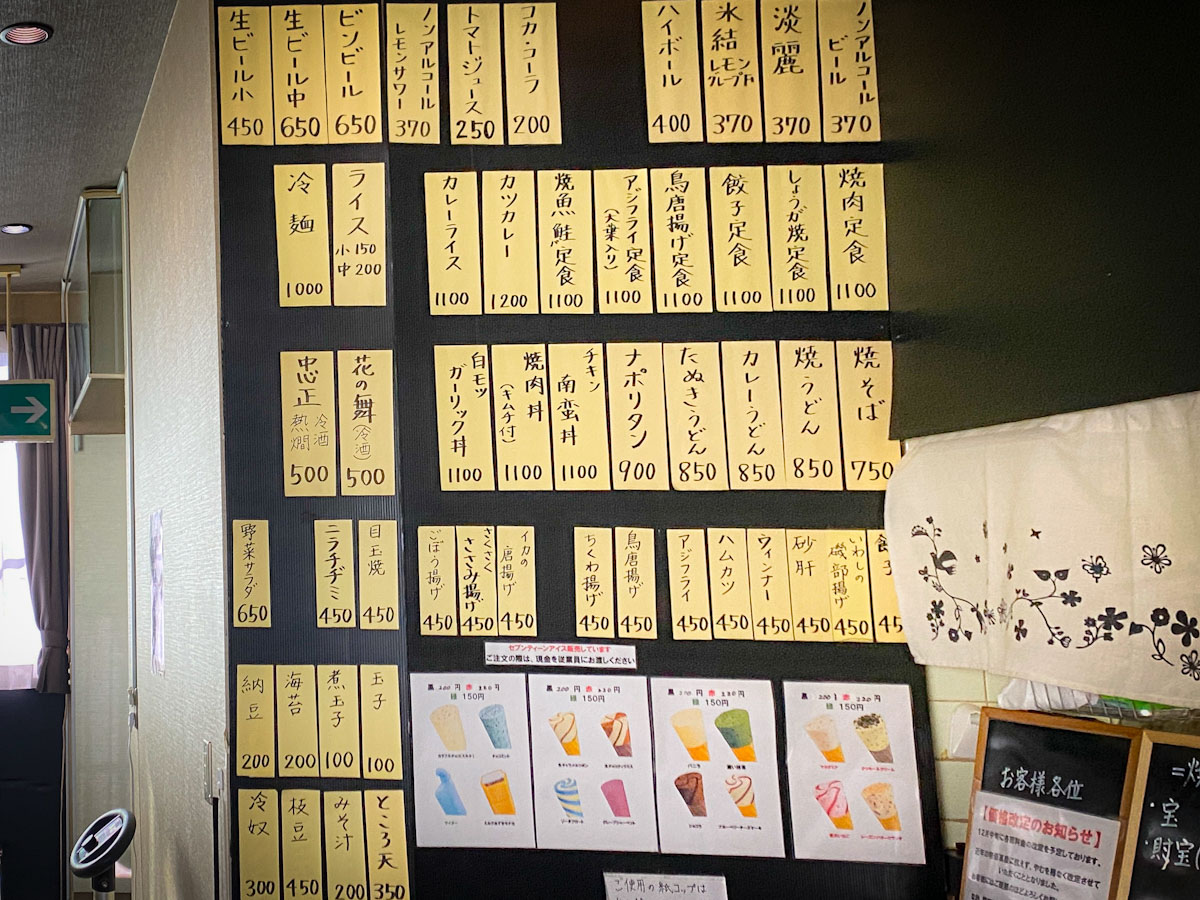 生ビール小 450
生ビール中 650
ビンビール 650
ノンアルコール
レモンサワー 370
トマトジュース 250
コカ・コーラ 200
ハイボール 400
氷結 レモン
グレープF 370
淡麗 370
ノンアルコール
ビール 370
冷麺 1000
ライス
小 150
中 200
カレーライス 1100
カツカレー 1200
焼魚鮭定食 1100
アジフライ定食
(大葉入り) 1100
鳥唐揚げ定食 1100
餃子定食 1100
しょうが焼定食 1100
焼肉定食 1100
忠正 冷酒
熱燗 500
花の舞(冷酒) 500
白モツ
ガーリック丼 1100
焼肉丼
(キムチ付) 1100
チキン
南蛮丼 1100
ナポリタン 900
たぬきうどん 850
カレーうどん 850
焼うどん 850
焼そば 750
野菜サラダ 650
ニラチヂミ 450
目玉焼 450
ごぼう揚げ 450
さくさく
ささみ揚げ 450
イカの
唐揚げ 450
ちくわ揚げ 450
鳥唐揚げ 450
アジフライ 450
ハムカツ 450
ウィンナー 450
砂肝 450
いわしの
磯部揚げ 450
45
セブンティーンアイス販売しています
ご注文の際は、現金を従業員にお渡しください
納豆 200
海苔 200
煮玉子 100
玉子 100
緑 150円
緑 150円
緑 150円
緑 150円
バニラ
冷奴 300
枝豆 450
みそ汁 200
ところ天 350
ご使用の紙コップは
お客様各位
【価格改定のお知らせ】
宝
財宝